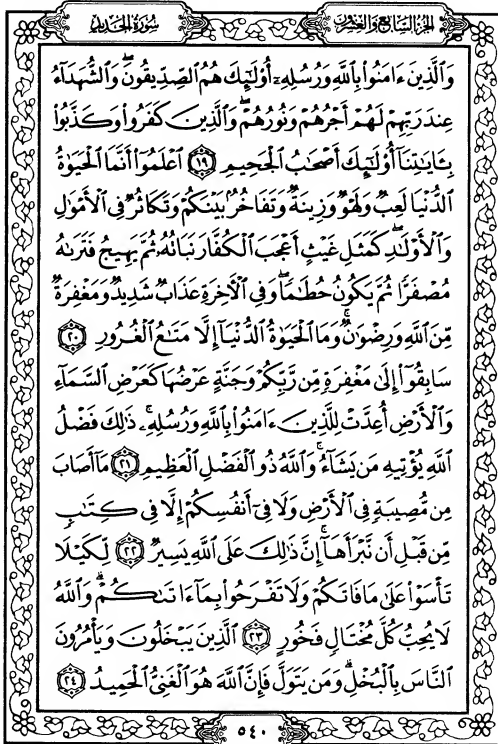 الجزء السابع والعشرون
سورة الحديد
وَالَّذِينَ ءَامَنُوا بِاللَّهِ وَرُسُلِهِۦٓ أُو۟لَٰٓئِكَ هُمُ الصِّدِّيقُونَ ۖ وَالشُّهَدَآءُ
عِندَ رَبِّهِمْ لَهُمْ أَجْرُهُمْ وَنُورُهُمْ ۖ وَالَّذِينَ كَفَرُوا وَكَذَّبُوا
بِـَٔايَٰتِنَآ أُو۟لَٰٓئِكَ أَصْحَٰبُ الْجَحِيمِ ﴿١٩﴾ اعْلَمُوٓا أَنَّمَا الْحَيَوٰةُ
الدُّنْيَا لَعِبٌ وَلَهْوٌ وَزِينَةٌ وَتَفَاخُرٌۢ بَيْنَكُمْ وَتَكَاثُرٌ فِى الْأَمْوَٰلِ
وَالْأَوْلَٰدِ ۖ كَمَثَلِ غَيْثٍ أَعْجَبَ الْكُفَّارَ نَبَاتُهُۥ ثُمَّ يَهِيجُ فَتَرَىٰهُ
مُصْفَرًّا ثُمَّ يَكُونُ حُطَٰمًا ۖ وَفِى الْأَخِرَةِ عَذَابٌ شَدِيدٌ وَمَغْفِرَةٌ
مِّنَ اللَّهِ وَرِضْوَٰنٌ ۚ وَمَا الْحَيَوٰةُ الدُّنْيَآ إِلَّا مَتَٰعُ الْغُرُورِ ﴿٢٠﴾
سَابِقُوٓا إِلَىٰ مَغْفِرَةٍ مِّن رَّبِّكُمْ وَجَنَّةٍ عَرْضُهَا كَعَرْضِ السَّمَآءِ
وَالْأَرْضِ أُعِدَّتْ لِلَّذِينَ ءَامَنُوا بِاللَّهِ وَرُسُلِهِۦ ۚ ذَٰلِكَ فَضْلُ
اللَّهِ يُؤْتِيهِ مَن يَشَآءُ ۚ وَاللَّهُ ذُو الْفَضْلِ الْعَظِيمِ ﴿٢١﴾ مَآ أَصَابَ
مِن مُّصِيبَةٍ فِى الْأَرْضِ وَلَا فِىٓ أَنفُسِكُمْ إِلَّا فِى كِتَٰبٍ
مِّن قَبْلِ أَن نَّبْرَأَهَآ ۚ إِنَّ ذَٰلِكَ عَلَى اللَّهِ يَسِيرٌ ﴿٢٢﴾ لِّكَيْلَا
تَأْسَوْا عَلَىٰ مَا فَاتَكُمْ وَلَا تَفْرَحُوا بِمَآ ءَاتَىٰكُمْ ۗ وَاللَّهُ
لَا يُحِبُّ كُلَّ مُخْتَالٍ فَخُورٍ ﴿٢٣﴾ الَّذِينَ يَبْخَلُونَ وَيَأْمُرُونَ
النَّاسَ بِالْبُخْلِ ۗ وَمَن يَتَوَلَّ فَإِنَّ اللَّهَ هُوَ الْغَنِىُّ الْحَمِيدُ ﴿٢٤﴾
٥٤٠